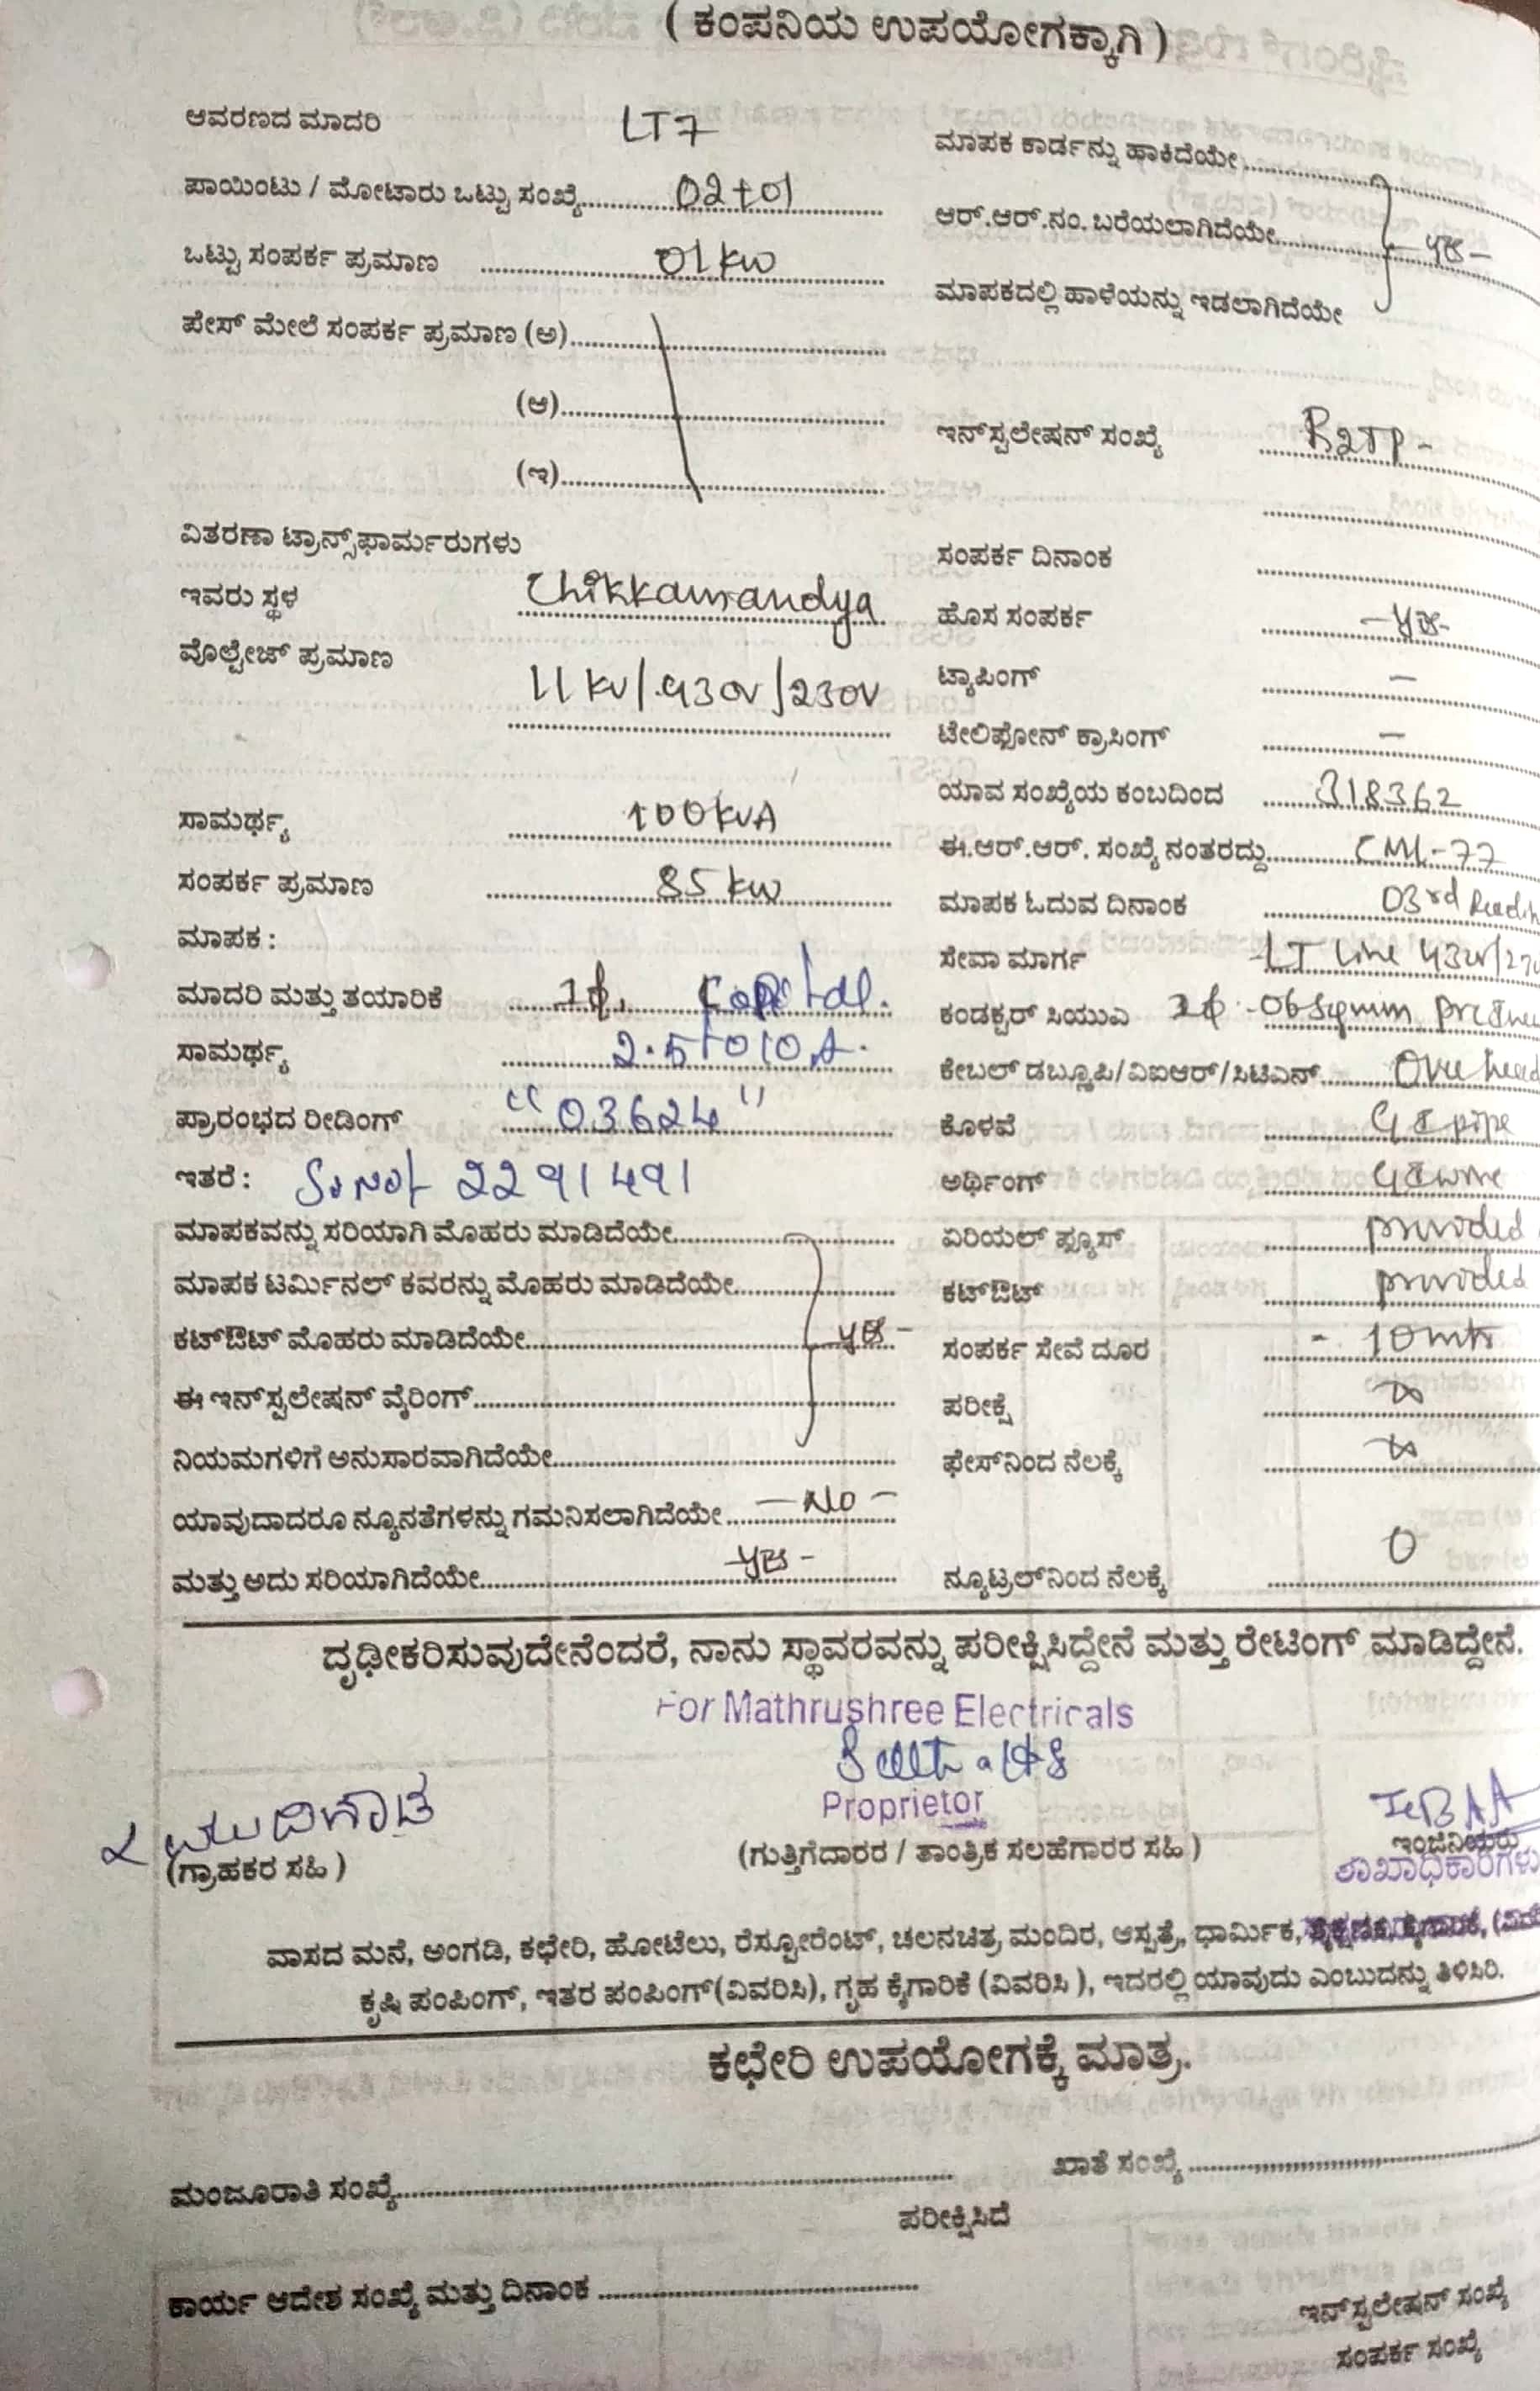 ( ಕಂಪನಿಯ ಉಪಯೋಗಕ್ಕಾಗಿ )
ಆವರಣದ ಮಾದರಿ LT7
ಪಾಯಿಂಟು / ಮೋಟಾರು ಒಟ್ಟು ಸಂಖ್ಯೆ 02+01
ಒಟ್ಟು ಸಂಪರ್ಕ ಪ್ರಮಾಣ 01 kw
ಪೇಸ್ ಮೇಲೆ ಸಂಪರ್ಕ ಪ್ರಮಾಣ (ಅ)
(ಆ)
(ಇ)
ವಿತರಣಾ ಟ್ರಾನ್ಸ್‌ಫಾರ್ಮರುಗಳು
ಇವರು ಸ್ಥಳ Chikkamandya
ವೊಲ್ಟೇಜ್ ಪ್ರಮಾಣ 11 kv/.430v/230V
ಸಾಮರ್ಥ್ಯ 100kvA
ಸಂಪರ್ಕ ಪ್ರಮಾಣ 85 kw
ಮಾಪಕ :
ಮಾದರಿ ಮತ್ತು ತಯಾರಿಕೆ 1ɸ, Capital.
ಸಾಮರ್ಥ್ಯ 2.5to10A.
ಪ್ರಾರಂಭದ ರೀಡಿಂಗ್ "03624"
ಇತರೆ : Sr No/- 2291491
ಮಾಪಕವನ್ನು ಸರಿಯಾಗಿ ಮೊಹರು ಮಾಡಿದೆಯೇ
ಮಾಪಕ ಟರ್ಮಿನಲ್ ಕವರನ್ನು ಮೊಹರು ಮಾಡಿದೆಯೇ
ಕಟ್‌ಔಟ್ ಮೊಹರು ಮಾಡಿದೆಯೇ yes -
ಈ ಇನ್‌ಸ್ಟಲೇಷನ್ ವೈರಿಂಗ್
ನಿಯಮಗಳಿಗೆ ಅನುಸಾರವಾಗಿದೆಯೇ
ಯಾವುದಾದರೂ ನ್ಯೂನತೆಗಳನ್ನು ಗಮನಿಸಲಾಗಿದೆಯೇ - No -
ಮತ್ತು ಅದು ಸರಿಯಾಗಿದೆಯೇ - yes -
ಮಾಪಕ ಕಾರ್ಡನ್ನು ಹಾಕಿದೆಯೇ
ಆರ್.ಆರ್.ನಂ. ಬರೆಯಲಾಗಿದೆಯೇ - yes -
ಮಾಪಕದಲ್ಲಿ ಹಾಳೆಯನ್ನು ಇಡಲಾಗಿದೆಯೇ
ಇನ್‌ಸ್ಟಲೇಷನ್ ಸಂಖ್ಯೆ
ಸಂಪರ್ಕ ದಿನಾಂಕ
ಹೊಸ ಸಂಪರ್ಕ - yes -
ಟ್ಯಾಪಿಂಗ್ -
ಟೇಲಿಫೋನ್ ಕ್ರಾಸಿಂಗ್ -
ಯಾವ ಸಂಖ್ಯೆಯ ಕಂಬದಿಂದ 318362
ಈ.ಆರ್.ಆರ್. ಸಂಖ್ಯೆ ನಂತರದ್ದು CML-77
ಮಾಪಕ ಓದುವ ದಿನಾಂಕ 03rd
ಸೇವಾ ಮಾರ್ಗ LT Line
ಕಂಡಕ್ಟರ್ ಸಿಯುಎ 06 sqmm
ಕೇಬಲ್ ಡಬ್ಲೂಪಿ/ವಿಐಆರ್/ಸಿಟಿಎನ್ Over head
ಕೊಳವೆ GI pipe
ಅರ್ಥಿಂಗ್ GI wire
ಏರಿಯಲ್ ಫ್ಯೂಸ್ provided
ಕಟ್‌ಔಟ್ provided
ಸಂಪರ್ಕ ಸೇವೆ ದೂರ - 10 mtr
ಪರೀಕ್ಷೆ ∞
ಫೇಸ್‌ನಿಂದ ನೆಲಕ್ಕೆ ∞
ನ್ಯೂಟ್ರಲ್‌ನಿಂದ ನೆಲಕ್ಕೆ 0
ದೃಢೀಕರಿಸುವುದೇನೆಂದರೆ, ನಾನು ಸ್ಥಾವರವನ್ನು ಪರೀಕ್ಷಿಸಿದ್ದೇನೆ ಮತ್ತು ರೇಟಿಂಗ್ ಮಾಡಿದ್ದೇನೆ.
For Mathrushree Electricals
Proprietor
(ಗ್ರಾಹಕರ ಸಹಿ )
(ಗುತ್ತಿಗೆದಾರರ / ತಾಂತ್ರಿಕ ಸಲಹೆಗಾರರ ಸಹಿ )
ಇಂಜಿನಿಯರು
ಶಾಖಾಧಿಕಾರಿಗಳು
ವಾಸದ ಮನೆ, ಅಂಗಡಿ, ಕಛೇರಿ, ಹೋಟೆಲು, ರೆಸ್ಟೋರೆಂಟ್, ಚಲನಚಿತ್ರ ಮಂದಿರ, ಆಸ್ಪತ್ರೆ, ಧಾರ್ಮಿಕ,
ಕೃಷಿ ಪಂಪಿಂಗ್, ಇತರ ಪಂಪಿಂಗ್(ವಿವರಿಸಿ), ಗೃಹ ಕೈಗಾರಿಕೆ (ವಿವರಿಸಿ ), ಇದರಲ್ಲಿ ಯಾವುದು ಎಂಬುದನ್ನು ತಿಳಿಸಿರಿ.
ಕಛೇರಿ ಉಪಯೋಗಕ್ಕೆ ಮಾತ್ರ.
ಮಂಜೂರಾತಿ ಸಂಖ್ಯೆ
ಖಾತೆ ಸಂಖ್ಯೆ
ಪರೀಕ್ಷಿಸಿದೆ
ಕಾರ್ಯ ಆದೇಶ ಸಂಖ್ಯೆ ಮತ್ತು ದಿನಾಂಕ
ಇನ್‌ಸ್ಟಲೇಷನ್ ಸಂಖ್ಯೆ
ಸಂಪರ್ಕ ಸಂಖ್ಯೆ